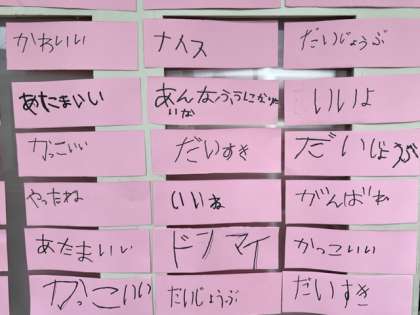 かわいい
ナイス
だいじょうぶ
あたまいい
あんなふうにかきたいな
いいよ
かっこいい
だいすき
だいじょうぶ
やったね
いいね
がんばれ
あたまいい
ドンマイ
かっこいい
かっこいい
だいじょうぶ
だいすき